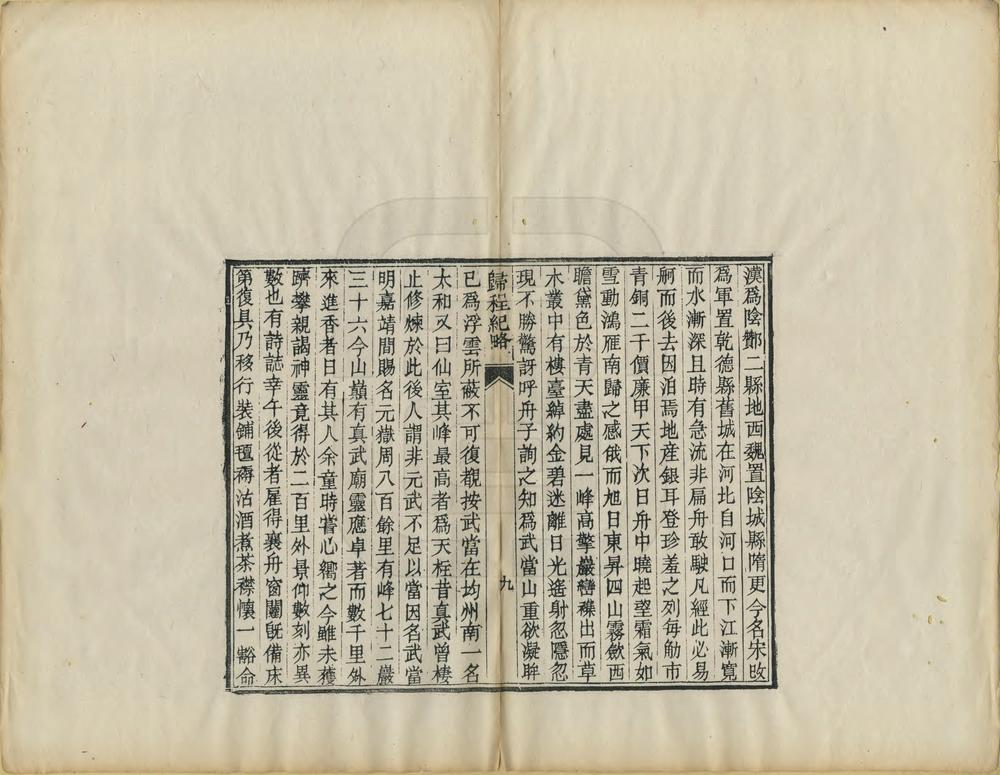 漢爲陰酇二縣地西魏置陰城縣隋更今名宋改
爲軍置乾德縣舊城在河北自河口而下江漸寬
而水漸深且時有急流非扁舟敢駛凡經此必易
舸而後去因泊焉地産銀耳登珍羞之列每觔市
青銅二千價廉甲天下次日舟中曉起望霜氣如
雪動鴻雁南歸之感俄而旭日東昇四山霧斂西
瞻黛色於青天盡處見一峰高擎巖巒襍出而草
木叢中有樓臺綽約金碧迷離日光遙射忽隱忽
現不勝驚訝呼舟子詢之知爲武當山重欲凝眸
歸程紀略
九
已爲浮雲所蔽不可復覩按武當在均州南一名
太和又曰仙室其峰最高者爲天柱昔真武曾棲
止修煉於此後人謂非元武不足以當因名武當
明嘉靖間賜名元嶽周八百餘里有峰七十二巖
三十六今山巔有真武廟靈應卓著而數千里外
來進香者日有其人余童時嘗心嚮之今雖未獲
躋攀親謁神靈竟得於二百里外景仰數刻亦異
數也有詩誌幸午後從者雇得襄舟窗闥旣備床
第復具乃移行裝鋪氊褥沽酒煮茶襟懷一豁命